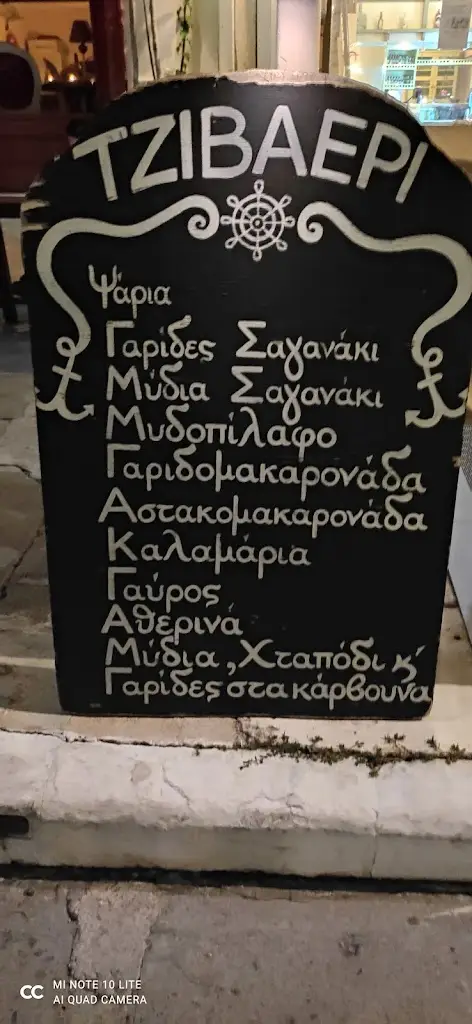 ΤΖΙΒΑΕΡΙ
Ψάρια
Γαρίδες Σαγανάκι
Μύδια Σαγανάκι
Μυδοπίλαφο
Γαριδομακαρονάδα
Αστακομακαρονάδα
Καλαμάρια
Γαύρος
Αθερινά
Μύδια, Χταπόδι κ'
Γαρίδες στα κάρβουνα
CC MI NOTE 10 LITE
AI QUAD CAMERA